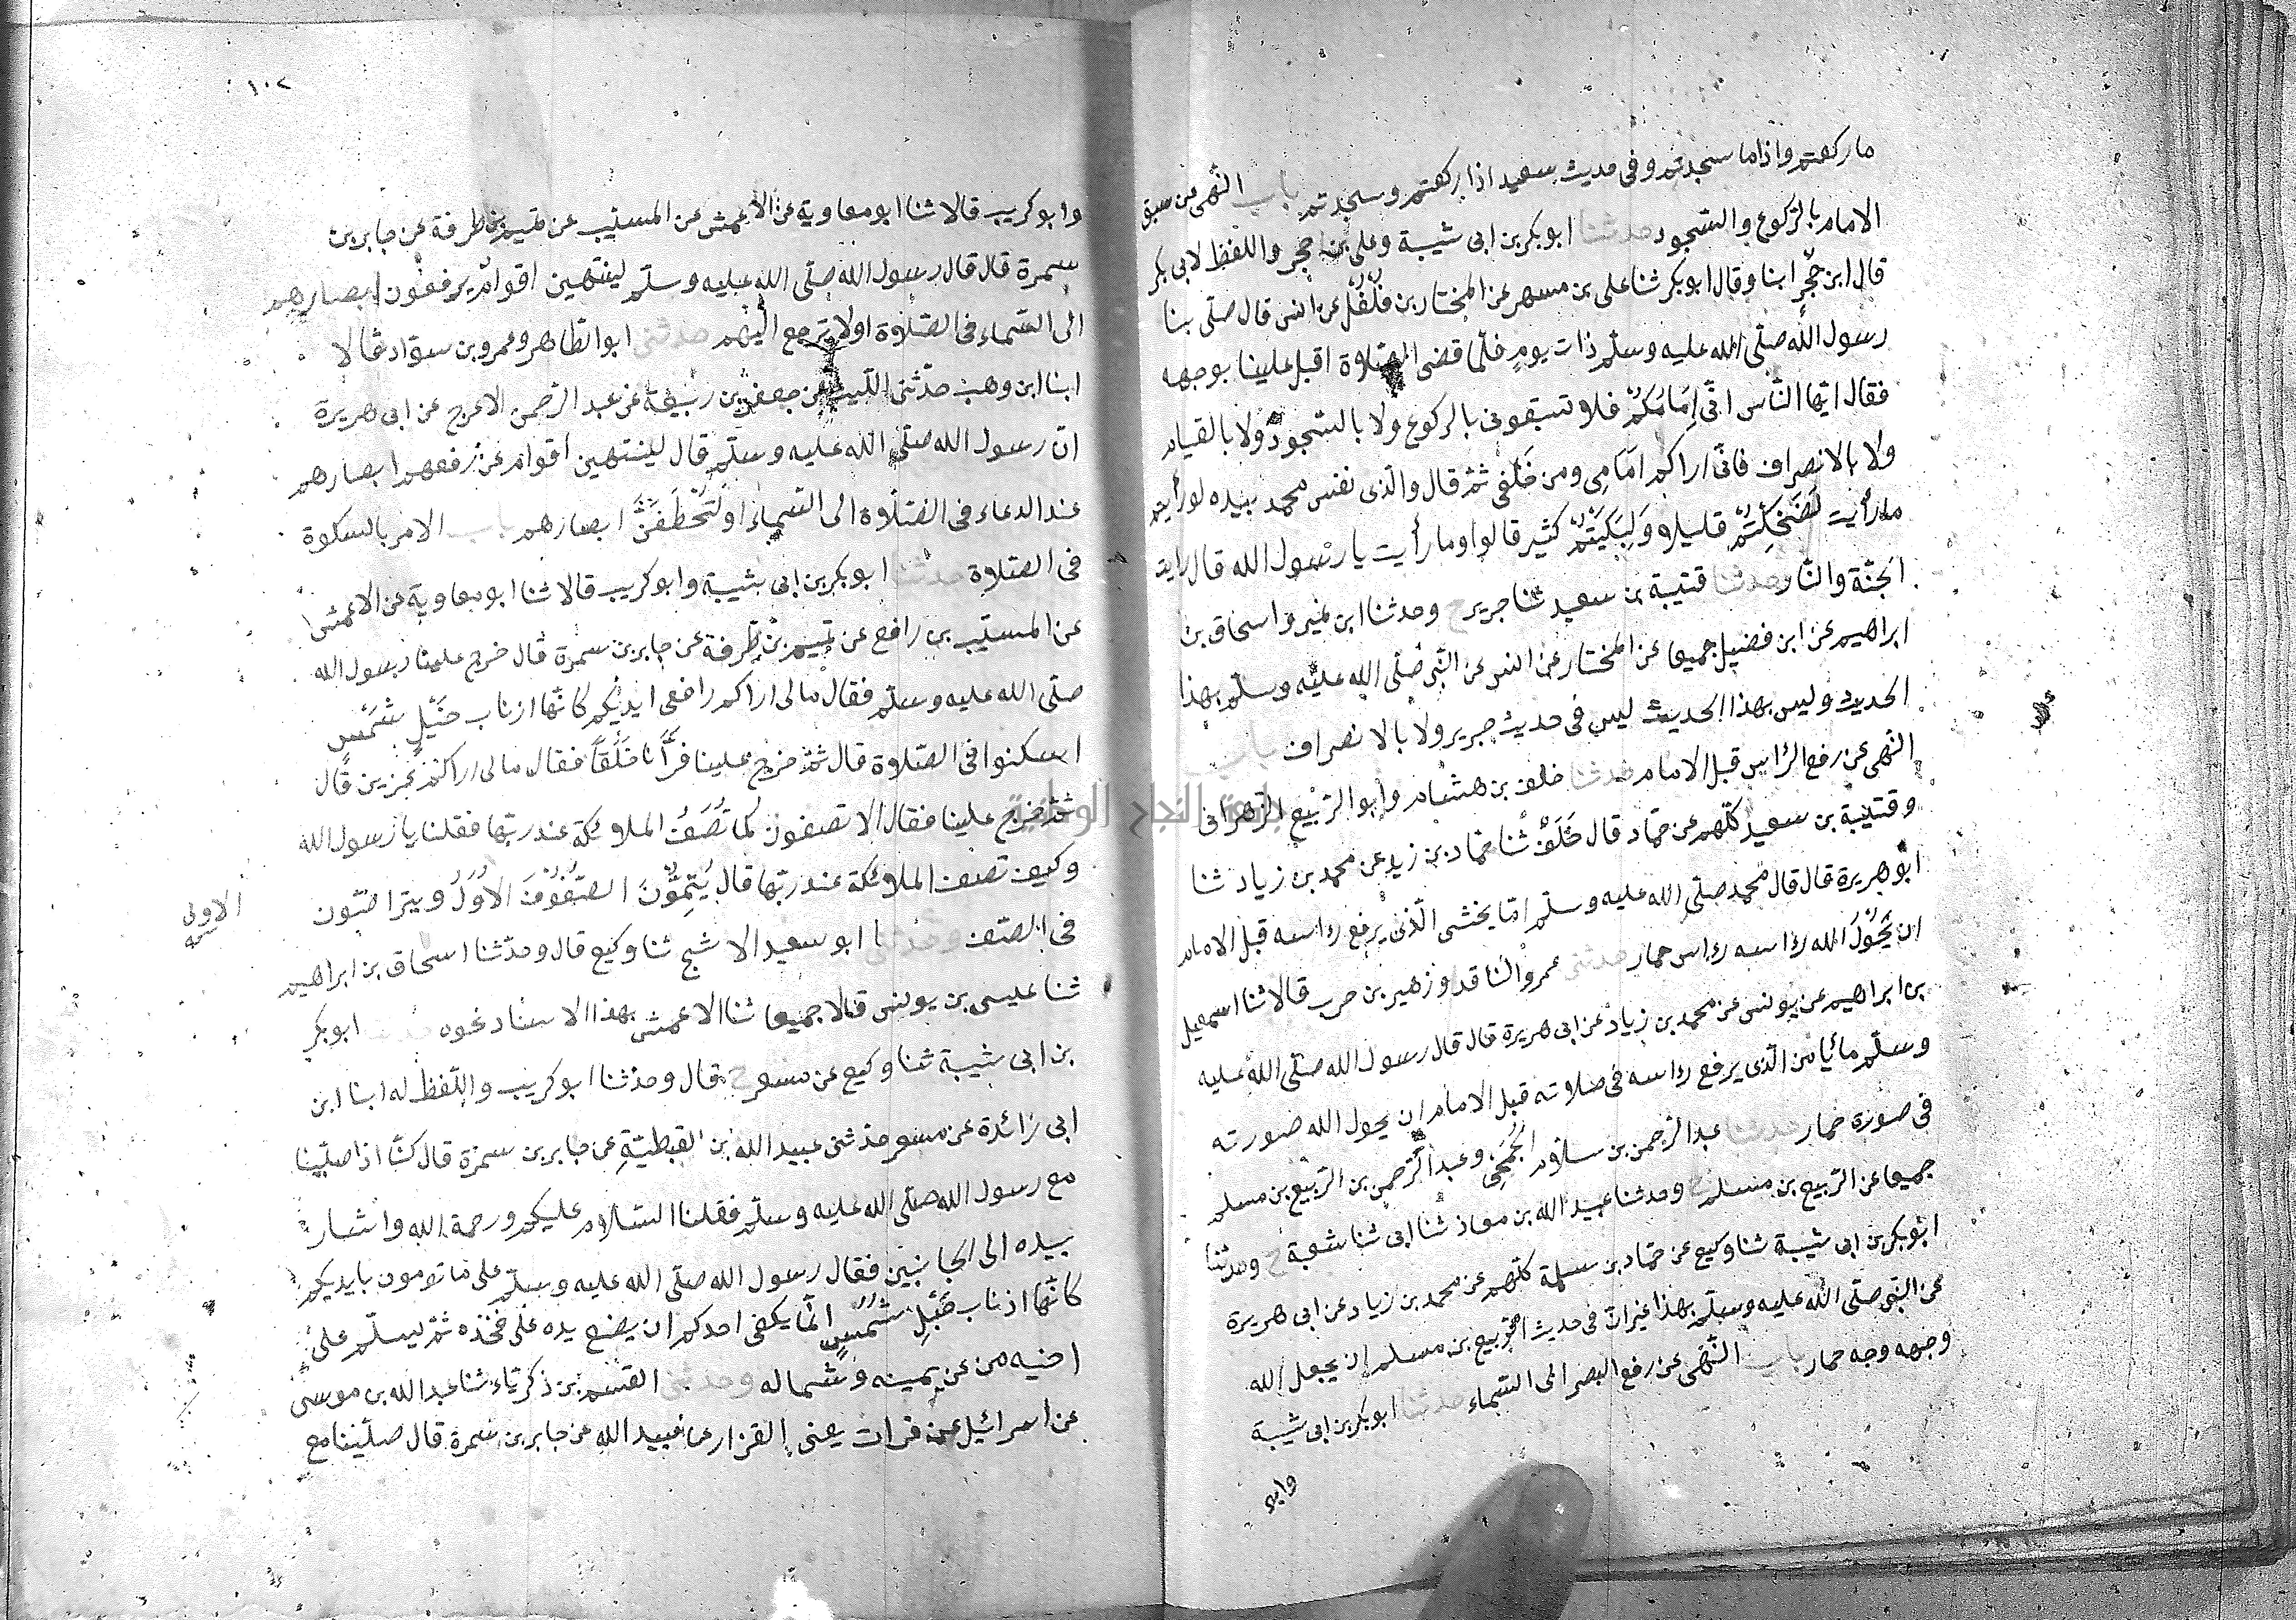 ما ركعتم واذا ما سجدتم وفى حديث سعيد اذا ركعتم وسجدتم باب النهى من سبق
الامام بالركوع والسجود حدثنا ابو بكر بن ابى شيبة وعلى بن حجر واللفظ لابى بكر
قال ابن حجر ابنا وقال ابو بكر ثنا على بن مسهر عن المختار بن فلفل عن انس قال صلى بنا
رسول الله صلى الله عليه وسلم ذات يوم فلما قضى الصلاة اقبل علينا بوجهه
فقال ايها الناس انى امامكم فلا تسبقونى بالركوع ولا بالسجود ولا بالقيام
ولا بالانصراف فانى اراكم امامى ومن خلفى ثم قال والذى نفس محمد بيده لو رأيتم
ما رأيت لضحكتم قليلا ولبكيتم كثير قالوا وما رأيت يا رسول الله قال رايت
الجنة والنار حدثنا قتيبة بن سعيد ثنا جرير ح وحدثنا ابن نمير واسحاق بن
ابراهيم عن ابن فضيل جميعا عن المختار عن انس عن النبى صلى الله عليه وسلم بهذا
الحديث وليس بهذا الحديث ليس فى حديث جرير ولا بالانصراف باب
النهى عن رفع الرأس قبل الامام حدثنا خلف بن هشام وابو الربيع الزهرانى
وقتيبة بن سعيد كلهم عن حماد قال خلف ثنا حماد بن زيد عن محمد بن زياد ثنا
ابو هريرة قال قال محمد صلى الله عليه وسلم اما يخشى الذى يرفع رأسه قبل الامام
ان يحول الله رأسه رأس حمار حدثنى عمرو الناقد وزهير بن حرب قالا ثنا اسمعيل
بن ابراهيم عن يونس عن محمد بن زياد عن ابى هريرة قال قال رسول الله صلى الله عليه
وسلم ما يأمن الذى يرفع رأسه فى صلاته قبل الامام ان يحول الله صورته
فى صورة حمار حدثنا عبد الرحمن بن سلام الجمحى وعبد الرحمن بن الربيع بن مسلم
جميعا عن الربيع بن مسلم ح وحدثنا عبيد الله بن معاذ ثنا ابى ثنا شعبة ح وحدثنا
ابو بكر بن ابى شيبة ثنا وكيع عن حماد بن سلمة كلهم عن محمد بن زياد عن ابى هريرة
عن النبى صلى الله عليه وسلم بهذا غير ان فى حديث الربيع بن مسلم ان يجعل الله
وجهه وجه حمار باب النهى عن رفع البصر الى السماء حدثنا ابو بكر بن ابى شيبة
وابو
١٠٢
وابو كريب قالا ثنا ابو معاوية عن الاعمش عن المسيب عن تميم بن طرفة عن جابر بن
سمرة قال قال رسول الله صلى الله عليه وسلم لينتهين اقوام يرفعون ابصارهم
الى السماء فى الصلاة او لا ترجع اليهم حدثنى ابو الطاهر وعمرو بن سواد قالا
ابنا ابن وهب حدثنى الليث عن جعفر بن ربيعة عن عبد الرحمن الاعرج عن ابى هريرة
ان رسول الله صلى الله عليه وسلم قال لينتهين اقوام عن رفعهم ابصارهم
عند الدعاء فى الصلاة الى السماء او لتخطفن ابصارهم باب الامر بالسكوة
فى الصلاة حدثنا ابو بكر بن ابى شيبة وابو كريب قالا ثنا ابو معاوية عن الاعمش
عن المسيب بن رافع عن تميم بن طرفة عن جابر بن سمرة قال خرج علينا رسول الله
صلى الله عليه وسلم فقال مالى اراكم رافعى ايديكم كانها اذناب خيل شمس
اسكنوا فى الصلاة قال ثم خرج علينا فرأنا حلقا فقال مالى اراكم عزين قال
ثم خرج علينا فقال الا تصفون كما تصف الملائكة عند ربها فقلنا يا رسول الله
وكيف تصف الملائكة عند ربها قال يتمون الصفوف الاول ويتراصون
الاولى
فى الصف وحدثنا ابو سعيد الاشج ثنا وكيع قال وحدثنا اسحاق بن ابراهيم
ثنا عيسى بن يونس قالا جميعا ثنا الاعمش بهذا الاسناد نحوه حدثنا ابو بكر
بن ابى شيبة ثنا وكيع عن مسعر ح قال وحدثنا ابو كريب واللفظ له ابنا ابن
ابى زائدة عن مسعر حدثنى عبيد الله بن القبطية عن جابر بن سمرة قال كنا اذا صلينا
مع رسول الله صلى الله عليه وسلم فقلنا السلام عليكم ورحمة الله واشار
بيده الى الجانبين فقال رسول الله صلى الله عليه وسلم على ما تومون بايديكم
كانها اذناب خيل شمس انما يكفى احدكم ان يضع يده على فخذه ثم يسلم على
اخيه من عن يمينه وشماله وحدثنى القسم بن زكرياء ثنا عبد الله بن موسى
عن اسرائيل عن فرات يعنى القزار عن عبيد الله عن جابر بن سمرة قال صلينا مع
جامعة النجاح الوطنية